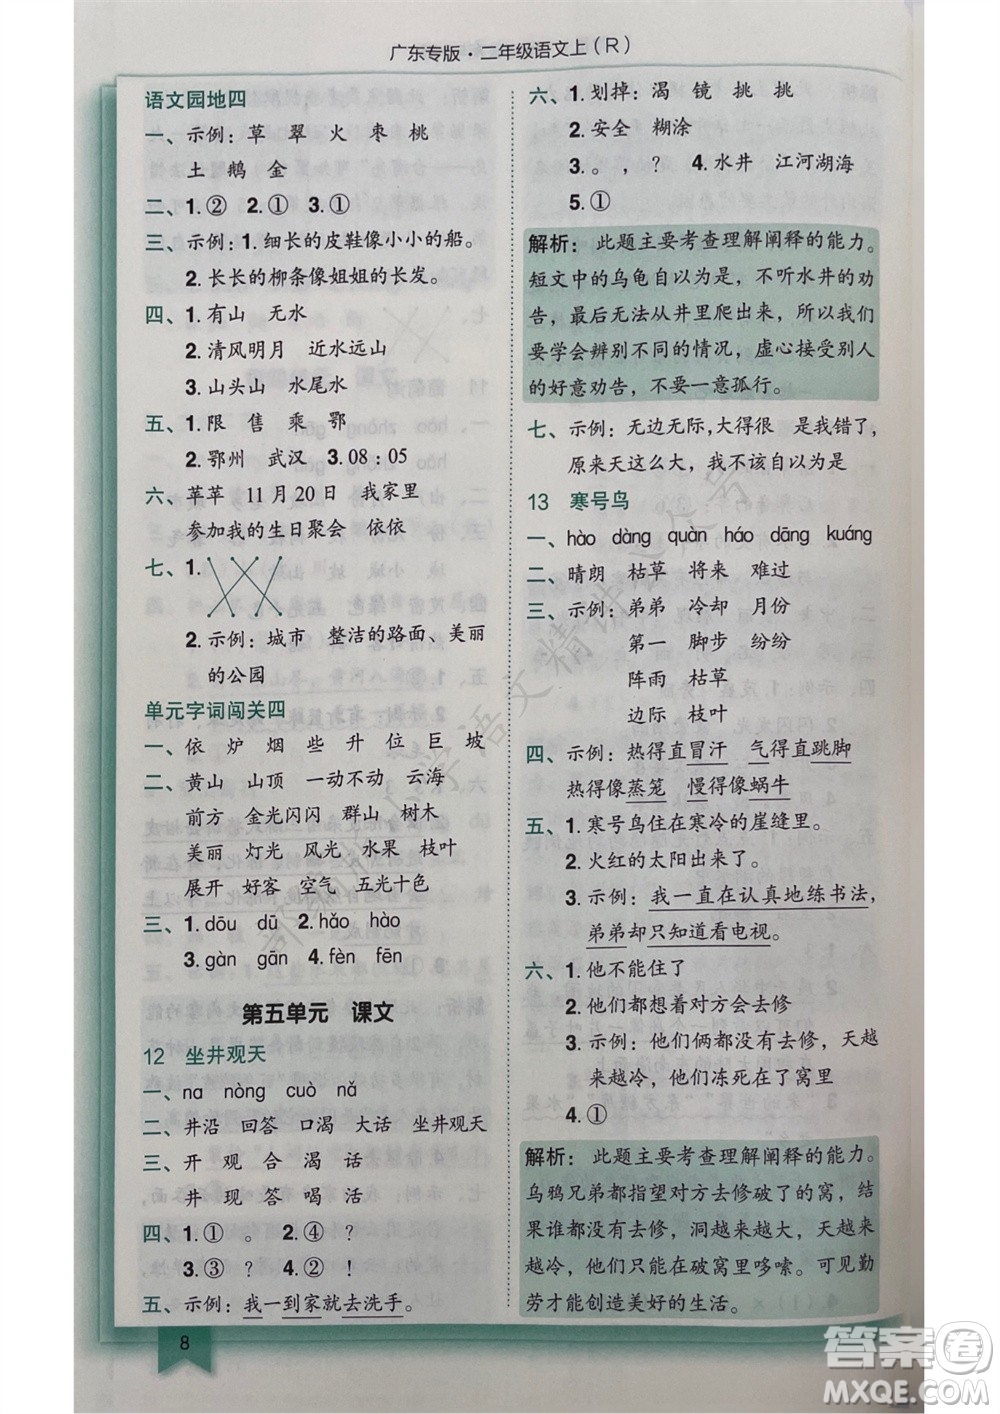 广东专版·二年级语文上(R)
语文园地四
一、示例:草 翠 火 枣 桃
土 鹅 金
二、1.② 2.① 3.①
三、示例:1.细长的皮鞋像小小的船。
2.长长的柳条像姐姐的长发。
四、1.有山 无水
2.清风明月 近水远山
3.山头山 水尾水
五、1.限 售 乘 鄂
2.鄂州 武汉 3.08:05
六、苹苹 11月20日 我家里
参加我的生日聚会 依依
七、1.
2.示例:城市 整洁的路面、美丽
的公园
单元字词闯关四
一、依 炉 烟 些 升 位 巨 坡
二、黄山 山顶 一动不动 云海
前方 金光闪闪 群山 树木
美丽 灯光 风光 水果 枝叶
展开 好客 空气 五光十色
三、1.dōu dū 2.hǎo hào
3.gàn gān 4.fèn fēn
第五单元 课文
12 坐井观天
一、na nòng cuò nǎ
二、井沿 回答 口渴 大话 坐井观天
三、开 观 合 渴 话
井 现 答 喝 活
四、1.① 。 2.④ ?
3.③ ? 4.② !
五、示例:我一到家就去洗手。
8
六、1.划掉:渴 镜 挑 挑
2.安全 糊涂
3.。 , ? 4.水井 江河湖海
5.①
解析:此题主要考查理解阐释的能力。
短文中的乌龟自以为是,不听水井的劝
告,最后无法从井里爬出来,所以我们
要学会辨别不同的情况,虚心接受别人
的好意劝告,不要一意孤行。
七、示例:无边无际,大得很 是我错了,
原来天这么大,我不该自以为是
13 寒号鸟
一、hào dàng quàn háo dāng kuáng
二、晴朗 枯草 将来 难过
三、示例:弟弟 冷却 月份
第一 脚步 纷纷
阵雨 枯草
边际 枝叶
四、示例:热得直冒汗 气得直跳脚
热得像蒸笼 慢得像蜗牛
五、1.寒号鸟住在寒冷的崖缝里。
2.火红的太阳出来了。
3.示例:我一直在认真地练书法,
弟弟却只知道看电视。
六、1.他不能住了
2.他们都想着对方会去修
3.示例:他们俩都没有去修,天越
来越冷,他们冻死在了窝里
4.①
解析:此题主要考查理解阐释的能力。
乌鸦兄弟都指望对方去修破了的窝,结
果谁都没有去修,洞越来越大,天越来
越冷,他们只能在破窝里哆嗦。可见勤
劳才能创造美好的生活。
答案圈
MXQE.COM